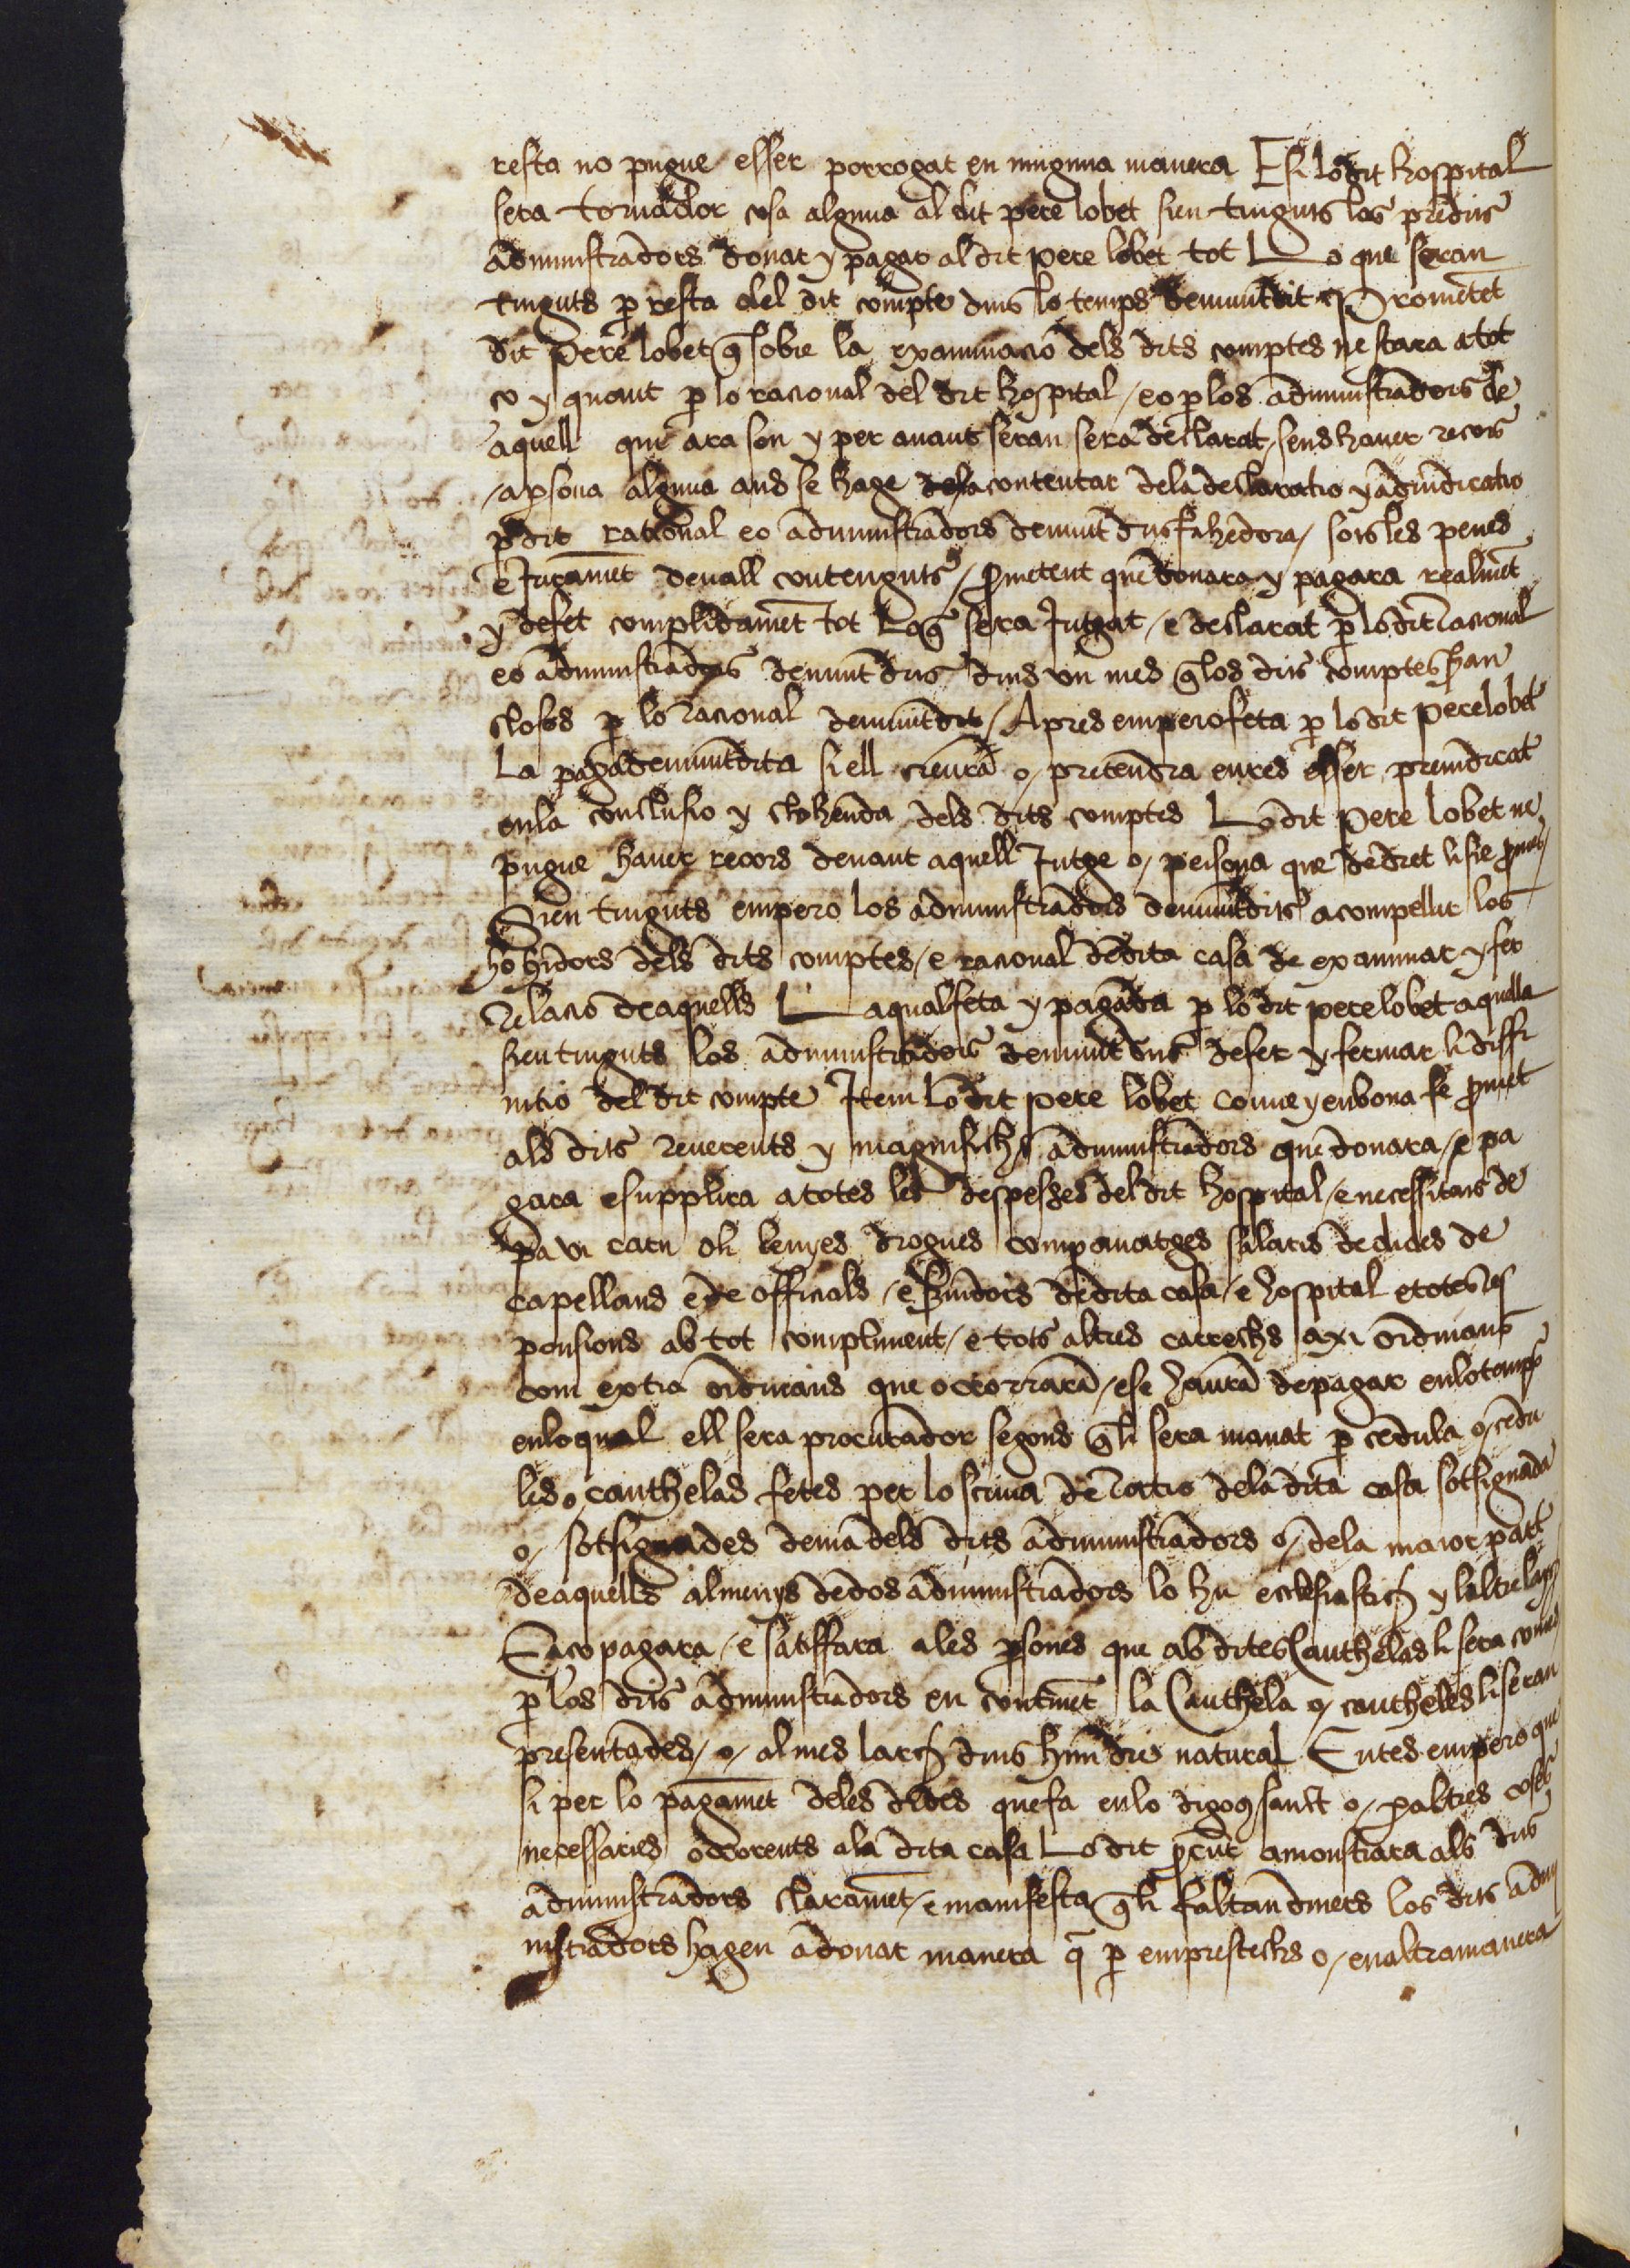 resta no pugue esser porrogat en ninguna manera E si lo dit hospital
sera tornador cosa alguna al dit pere lobet sien tinguts los predits
administradors donar y pagar al dit pere lobet tot Lo que seran
tinguts p resta del dit compte dins lo temps demuntdit Prometet
dit Pere lobet q sobre la examinacio dels dits comptes ne stara a tot
co y quant p lo racional del dit hospital / eo p los administradors de
aquell que ara son y per auant seran sera declarat / sens hauer recors
/ a psona alguna ans se hage contentar dela declaratio y adiudicatio
p dit rational eo administradors demunt dits fahedora / sots les penes
e Jurament deuall contenguts / pmetent que donara y pagara realmet
y defet complidamet tot Loq sera Jutgat / e declarat p lo dit racional
eo administradors demunt dits dins vn mes q los dits comptes sian
closos p lo racional demuntdit / Apres empero feta p lo dit pere lobet
La paga demuntdita si ell creura o / pretendra enres esser preiudicat
en la conclusio y clohenda dels dits comptes Lo dit pere lobet ne
pugue hauer recors deuant aquell Jutge o / persona que de dret li sie pmes /
Sien tinguts empero los administradors demuntdits a compellir los
hohidors dels dits comptes / e racional de dita casa de examinar y fer
Relacio de aquells La qual feta y pagada p lo dit pere lobet aquella
sien tinguts los administradors demunt dits de fer y fermar li diffi
nitio del dit compte Item Lo dit pere lobet conue y en bona fe pmet
als dits reuerents y magnifichs administradors que donara / e pa
gara e supplira a totes les despeses del dit hospital / e necessitats de
pa vi carn oli lenyes drogues companatges salaris de dides de
capellans e de officials / e seruidors de dita casa / e hospital e totes les
pensions ab tot compliment / e tots altres carrechs axi ordinaris
com extra ordinaris que ocorrara / e se haura de pagar en lo temps
en lo qual ell sera procurador segons q li sera manat p cedula o / cedu
les o cautheles fetes per lo scriua de racio dela dita casa sotsignada
o / sotsignades de ma dels dits administradors o / dela maior part
de aquells almenys de dos administradors lo hu ecclesiastich y laltre lay
E aco pagara / e satisfara a les psones que ab dites Cautheles li sera comes
p los dits administradors en continet la Cauthela o / cautheles li seran
presentades / o / al mes larch dins hun dia natural Entes empero que
si per lo pagamet deles dides que fa en lo digous sanct o / p altres coses
necessaries ocorrents ala dita casa Lo dit pcur amonstrara als dits
administradors claramet / e manifesta q li faltan diners los dits admi
nistradors hagen a donar manera q p emprestechs o / en altra manera